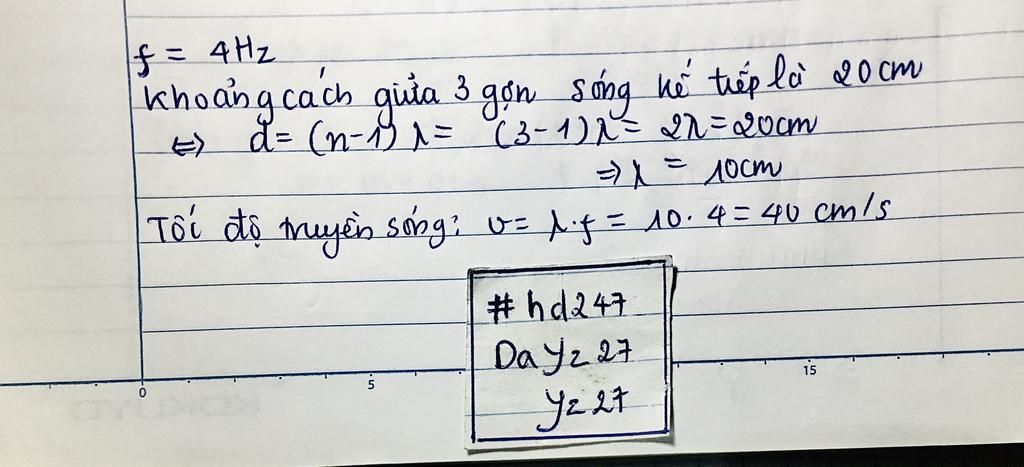 f = 4Hz
Khoảng cách giửa 3 gợn sóng kế tiếp là 20cm
⇔ d = (n-1) λ = (3-1) λ = 2λ = 20cm
⇒ λ = 10cm
Tốc độ truyền sóng: v = λ.f = 10. 4 = 40 cm/s
# hd247
DaYz27
Yz27
0 5 15
KOKUYO